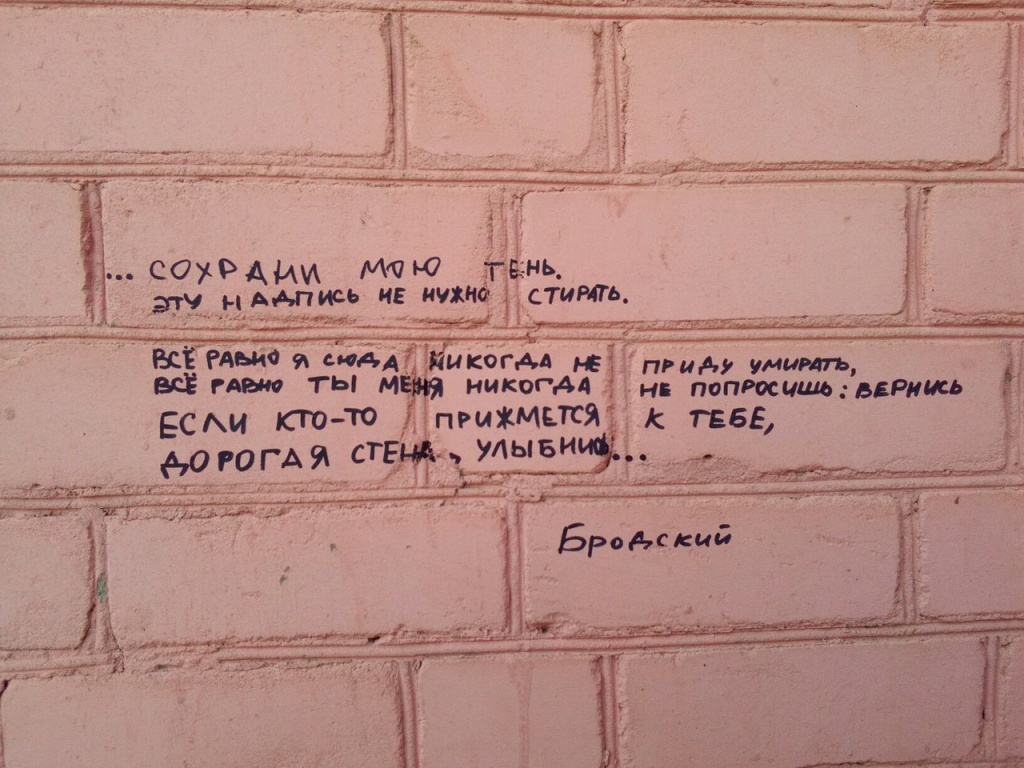 ... СОХРАНИ МОЮ ТЕНЬ.
ЭТУ НАДПИСЬ НЕ НУЖНО СТИРАТЬ.
ВСЁ РАВНО Я СЮДА НИКОГДА НЕ ПРИДУ УМИРАТЬ,
ВСЁ РАВНО ТЫ МЕНЯ НИКОГДА НЕ ПОПРОСИШЬ: ВЕРНИСЬ
ЕСЛИ КТО-ТО ПРИЖМЕТСЯ К ТЕБЕ,
ДОРОГАЯ СТЕНА, УЛЫБНИСЬ...
Бродский